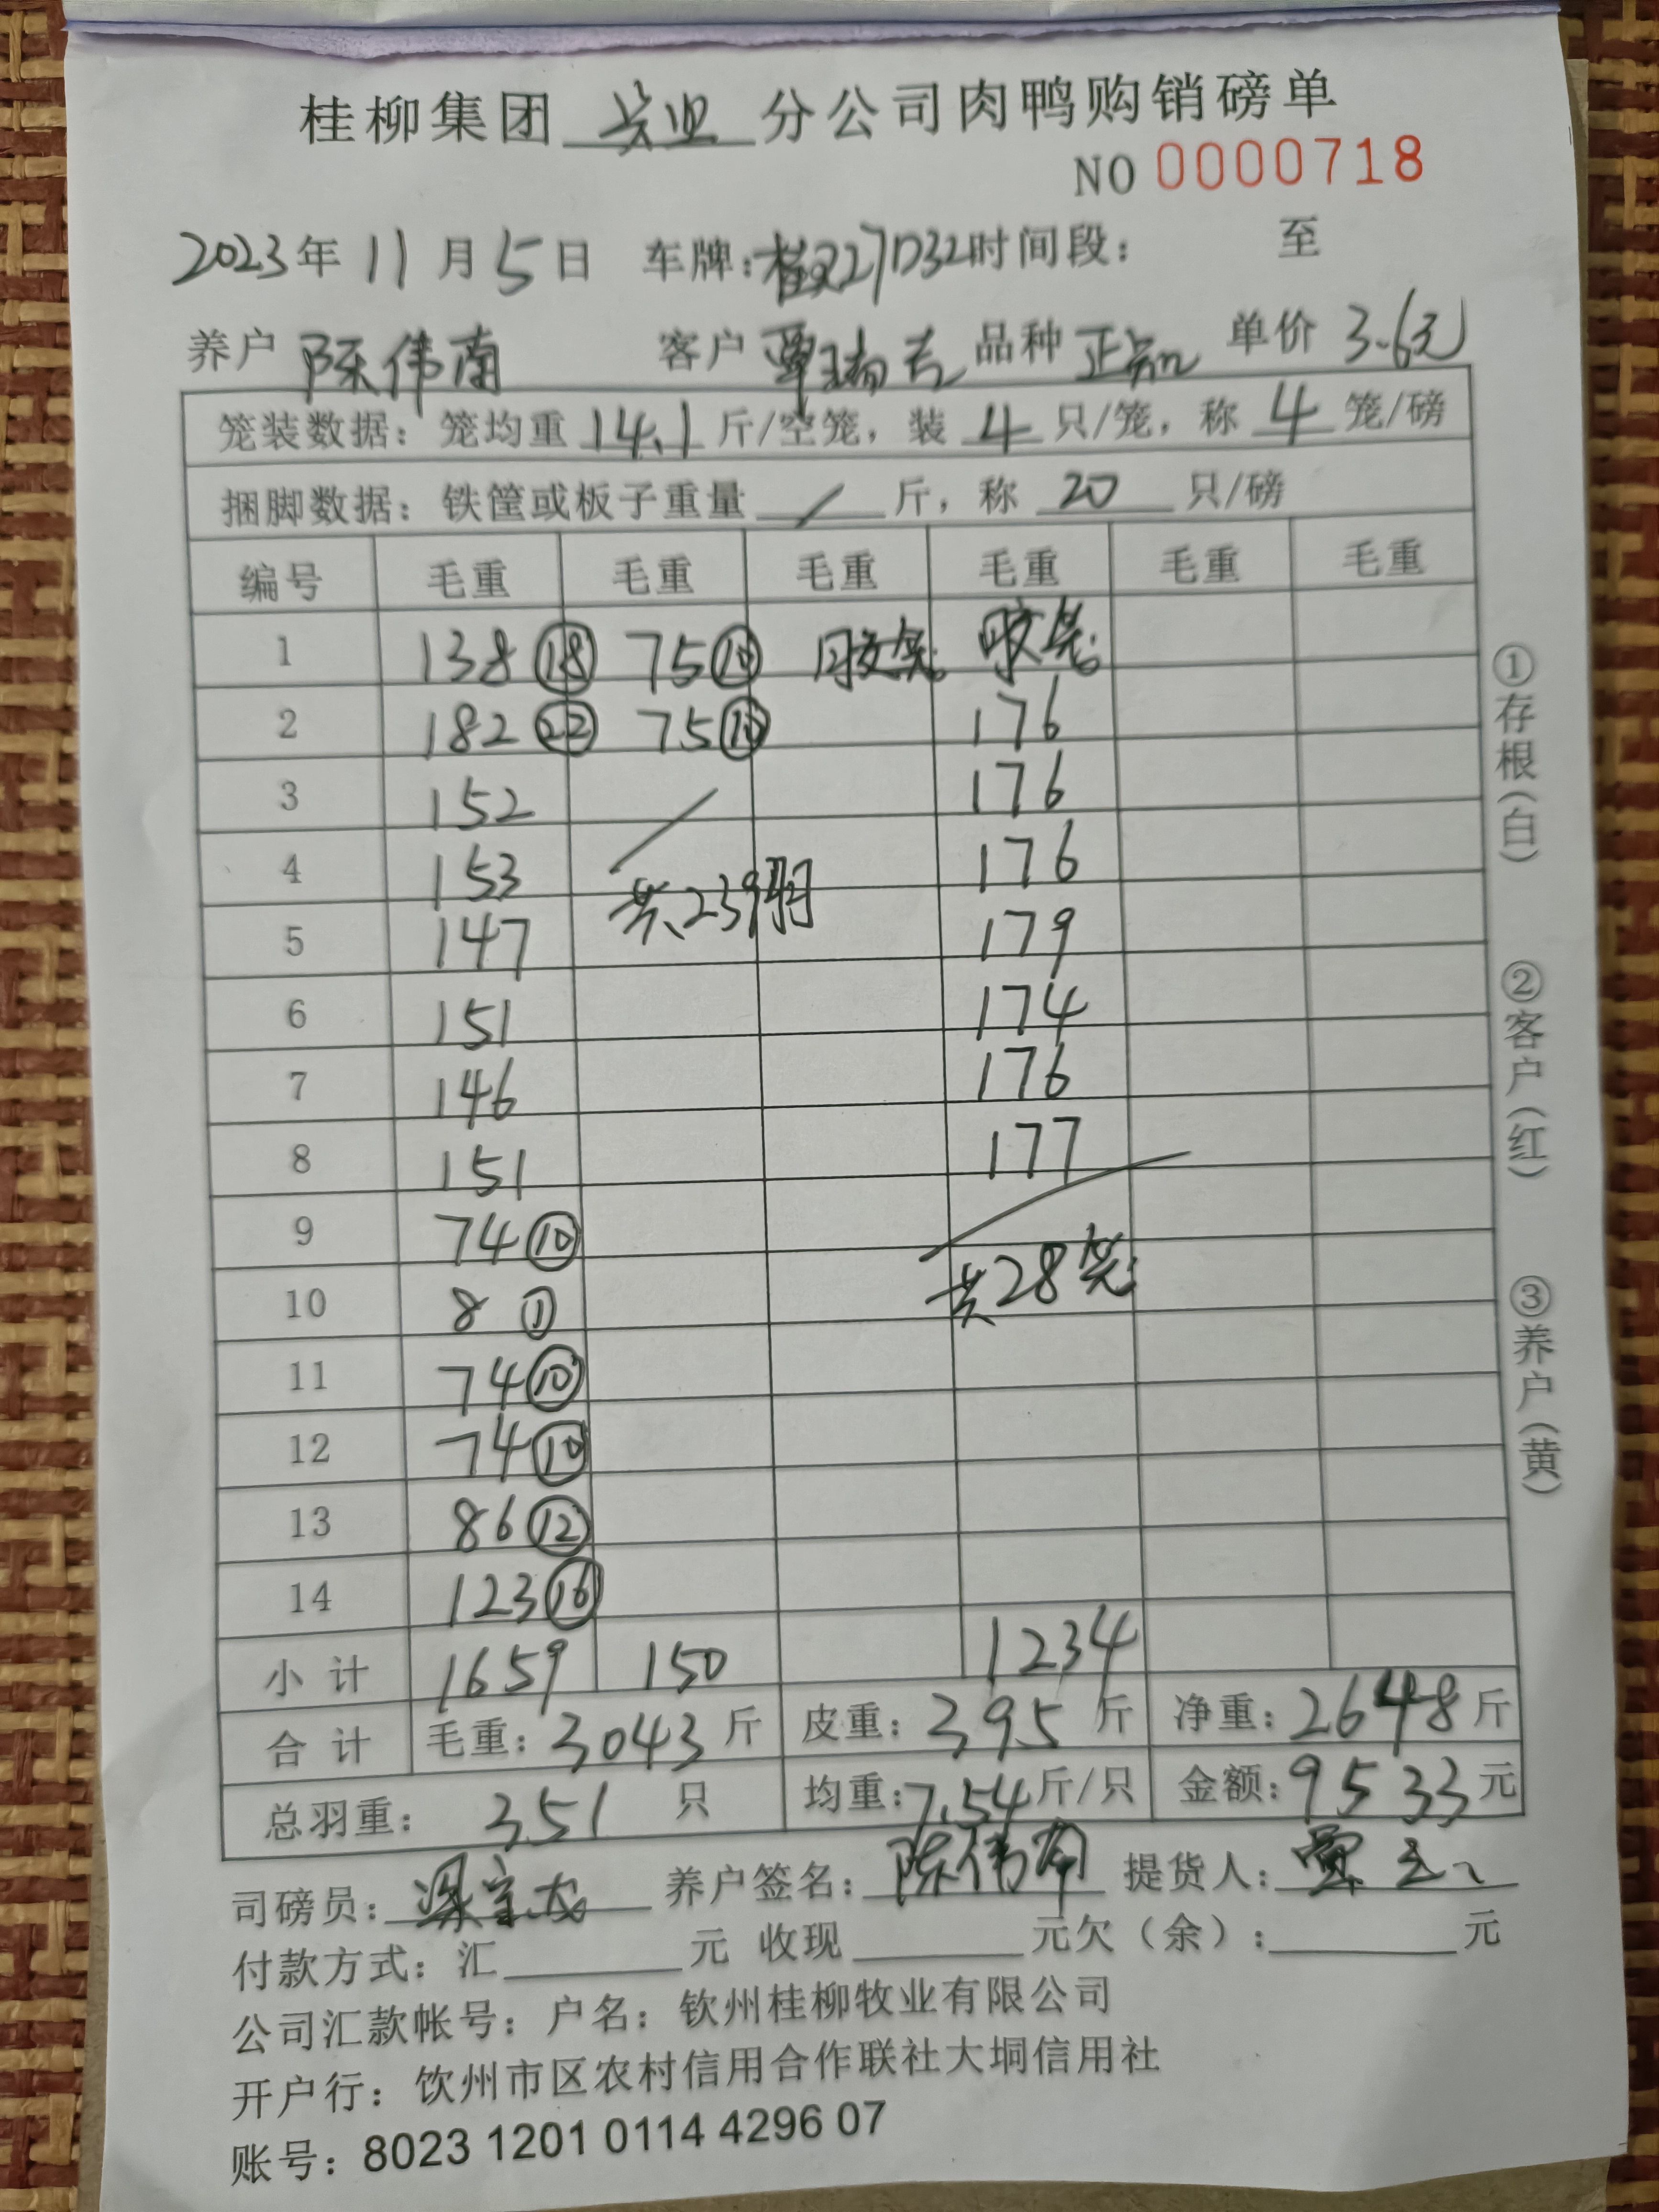 桂柳集团 兴业 分公司肉鸭购销磅单
NO 0000718
2023年 11 月 5 日 车牌: 27D32 时间段: 至
养户 陈伟南 客户 覃瑞吉 品种 正 单价 3.6元
笼装数据: 笼均重 14.1 斤/空笼, 装 4 只/笼, 称 4 笼/磅
捆脚数据: 铁筐或板子重量 / 斤, 称 20 只/磅
编号 毛重 毛重 毛重 毛重 毛重 毛重
1 138 ⑱ 75 ⑩ 胶笼 胶笼
2 182 ㉒ 75 ⑩ 176
3 152 176
4 153 176
5 147 共239羽 179
6 151 174
7 146 176
8 151 177
9 74 ⑩ 共28笼
10 8 ①
11 74 ⑩
12 74 ⑩
13 86 ⑫
14 123 ⑯
小计 1659 150 1234
合计 毛重: 3043 斤 皮重: 395 斤 净重: 2648 斤
总羽重: 351 只 均重: 7.54 斤/只 金额: 9533 元
司磅员: 养户签名: 陈伟南 提货人: 覃
付款方式: 汇 元 收现 元欠（余）: 元
公司汇款帐号: 户名: 钦州桂柳牧业有限公司
开户行: 钦州市区农村信用合作联社大垌信用社
账号: 8023 1201 0114 4296 07
①存根(白) ②客户(红) ③养户(黄)